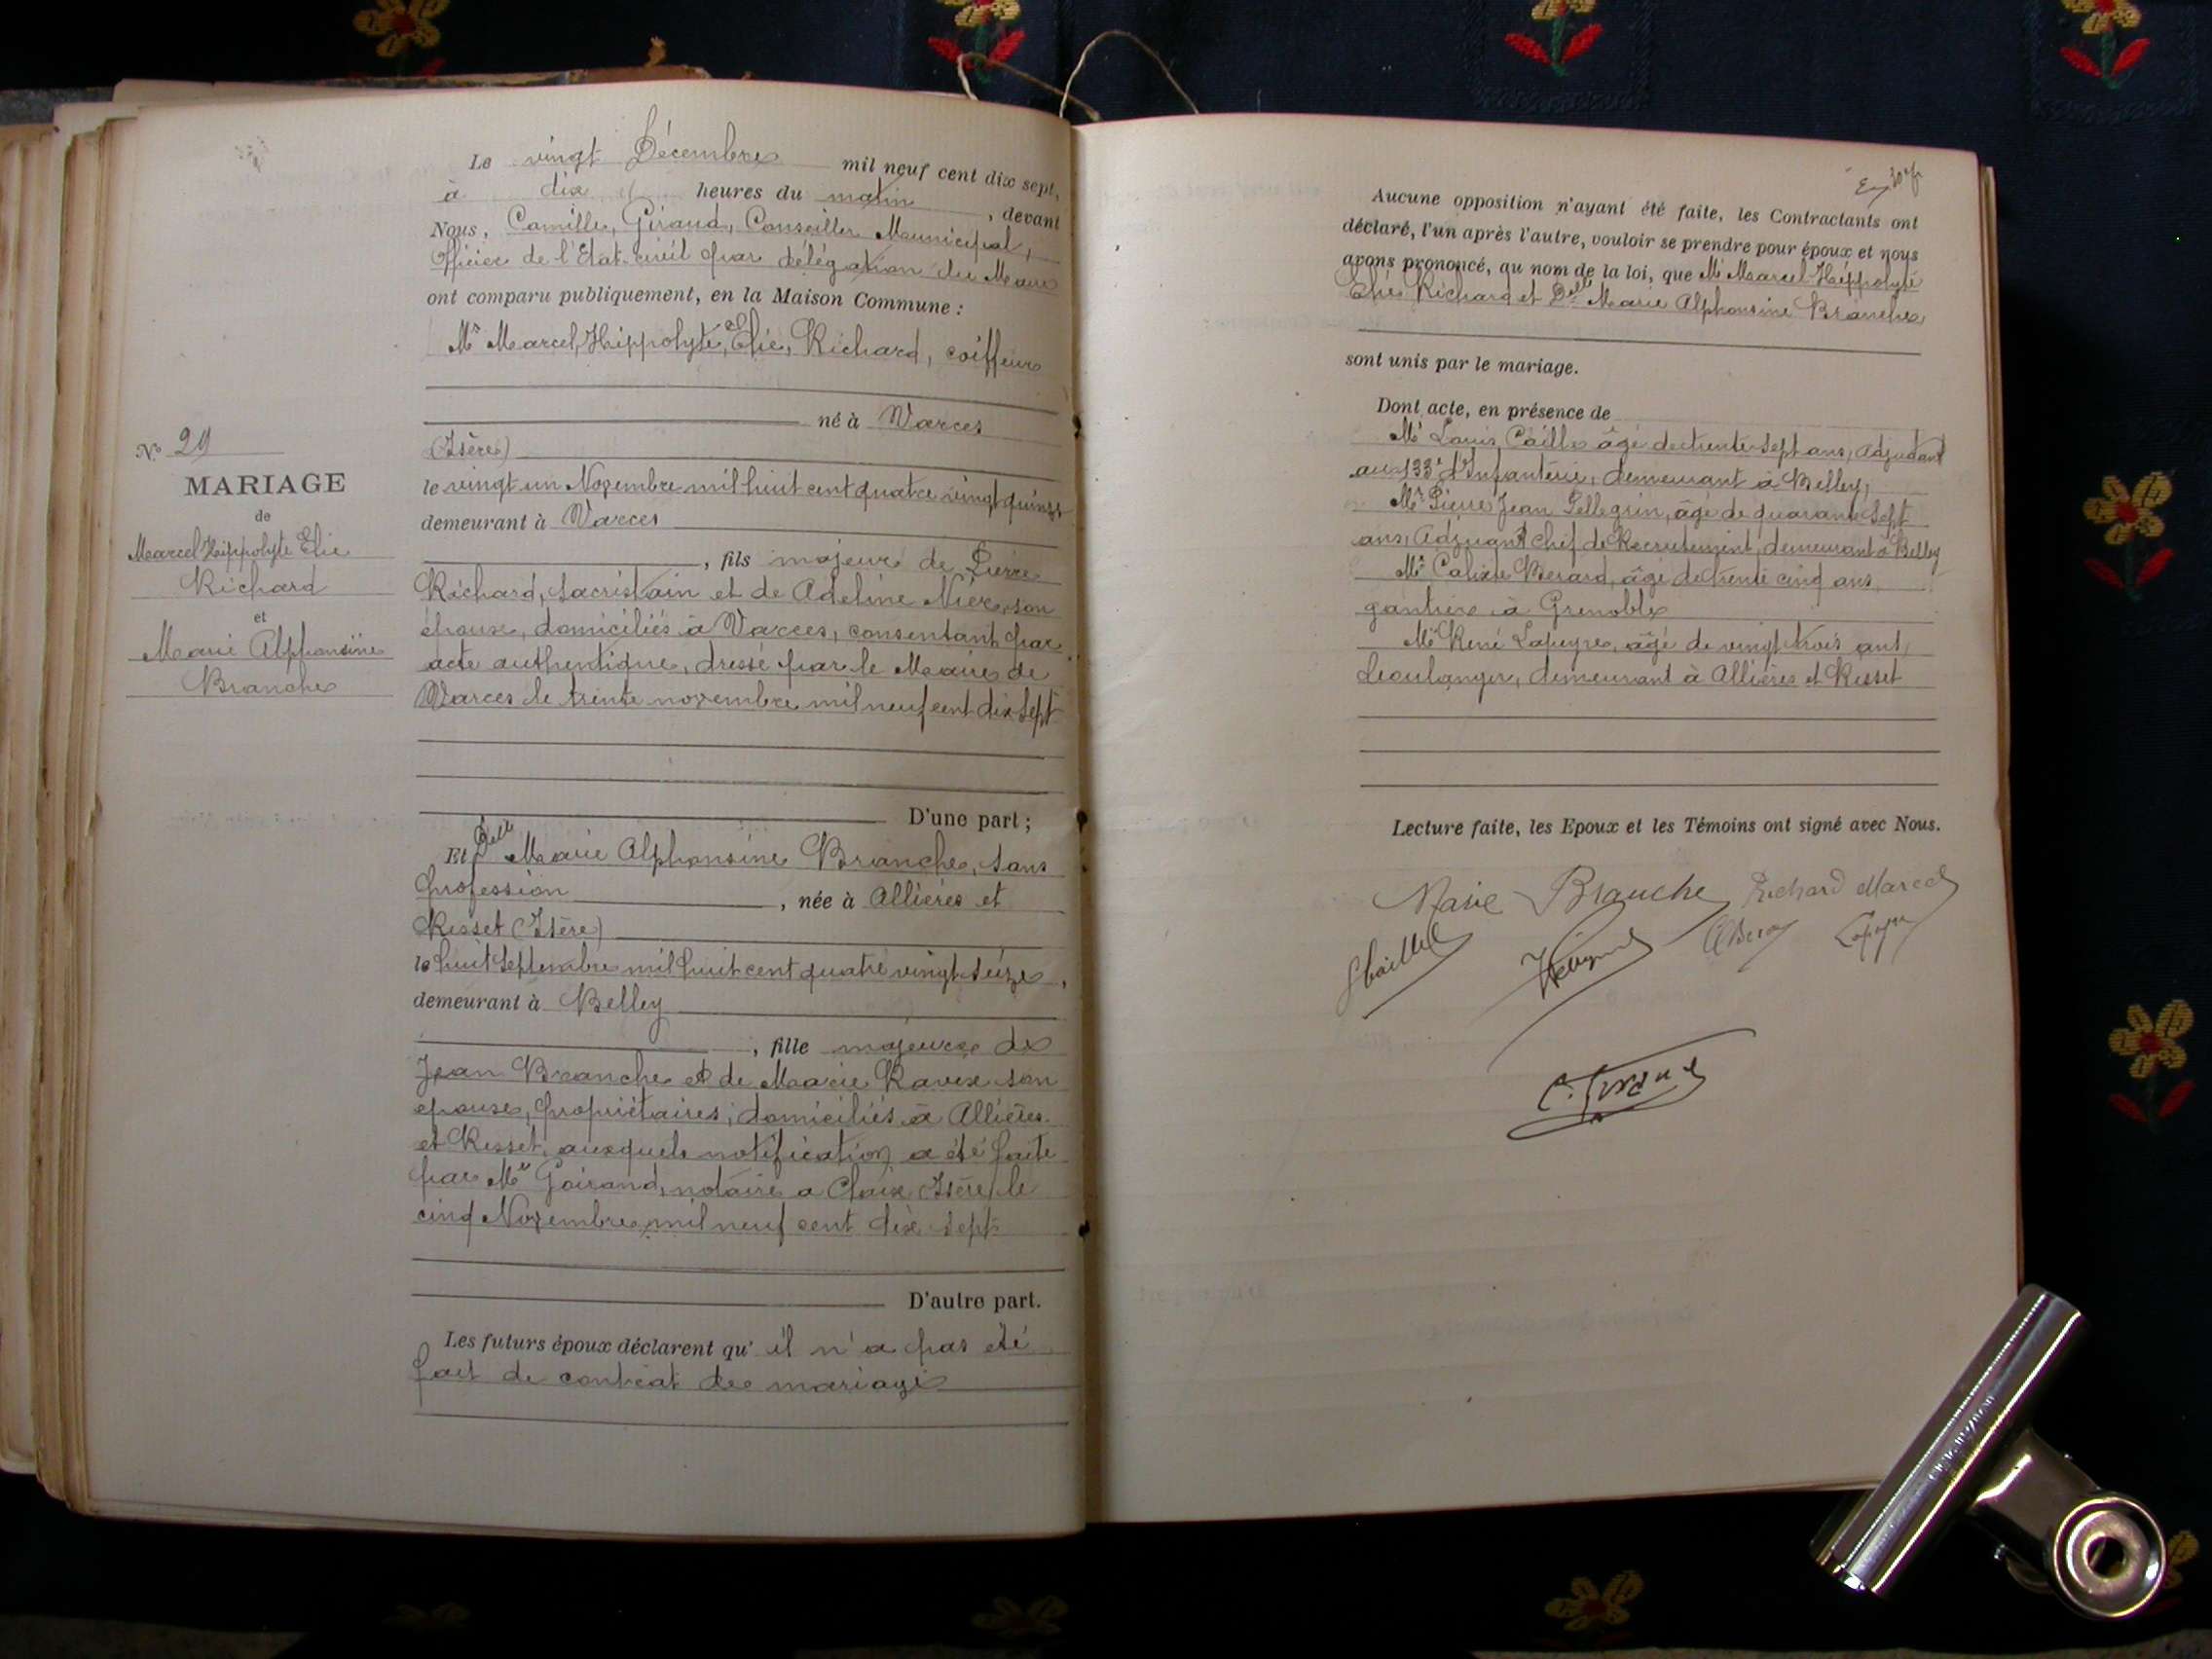 Le vingt Décembre mil neuf cent dix sept,
à dix heures du matin, devant
Nous, Camille, Giraud, Conseiller Municipal,
Officier de l'Etat-civil par délégation du Maire
ont comparu publiquement, en la Maison Commune :
Mr Marcel, Hippolyte, Elie, Richard, coiffeur
né à Varces
(Isère)
le vingt un Novembre mil huit cent quatre vingt quinze
demeurant à Varces
, fils majeur de Pierre
Richard, sacristain et de Adeline Nier, son
épouse, domiciliés à Varces, consentant par
acte authentique, dressé par le Maire de
Varces le trente novembre mil neuf cent dix sept
D'une part ;
Et Delle Marie Alphonsine Branche, sans
profession, née à Allières et
Risset (Isère)
le huit Septembre mil huit cent quatre vingt seize,
demeurant à Belley
, fille majeure de
Jean Branche et de Marie Ravix son
épouse, propriétaires, domiciliés à Allières
et Risset, auxquels notification a été faite
par Me Goirand, notaire a Claix (Isère) le
cinq Novembre mil neuf cent dix sept
D'autre part.
Les futurs époux déclarent qu' il n'a pas été
fait de contrat de mariage
No 29
MARIAGE
de
Marcel Hippolyte Elie
Richard
et
Marie Alphonsine
Branche
Aucune opposition n'ayant été faite, les Contractants ont
déclaré, l'un après l'autre, vouloir se prendre pour époux et nous
avons prononcé, au nom de la loi, que Mr Marcel Hippolyte
Elie Richard et Delle Marie Alphonsine Branche
sont unis par le mariage.
Dont acte, en présence de
Mr Louis Caille âgé de trente sept ans, Adjudant
au 133e d'Infanterie, demeurant à Belley,
Mr Pierre Jean Pellegrin, âgé de quarante sept
ans, Adjudant chef de Recrutement, demeurant à Belley
Mr Calixte Berard, âgé de trente cinq ans,
gantier à Grenoble
Mr René Lapeyre, âgé de vingt trois ans,
boulanger, demeurant à Allières et Risset
Lecture faite, les Epoux et les Témoins ont signé avec Nous.
Marie Branche Richard Marcel
Lapeyre
C. Giraud